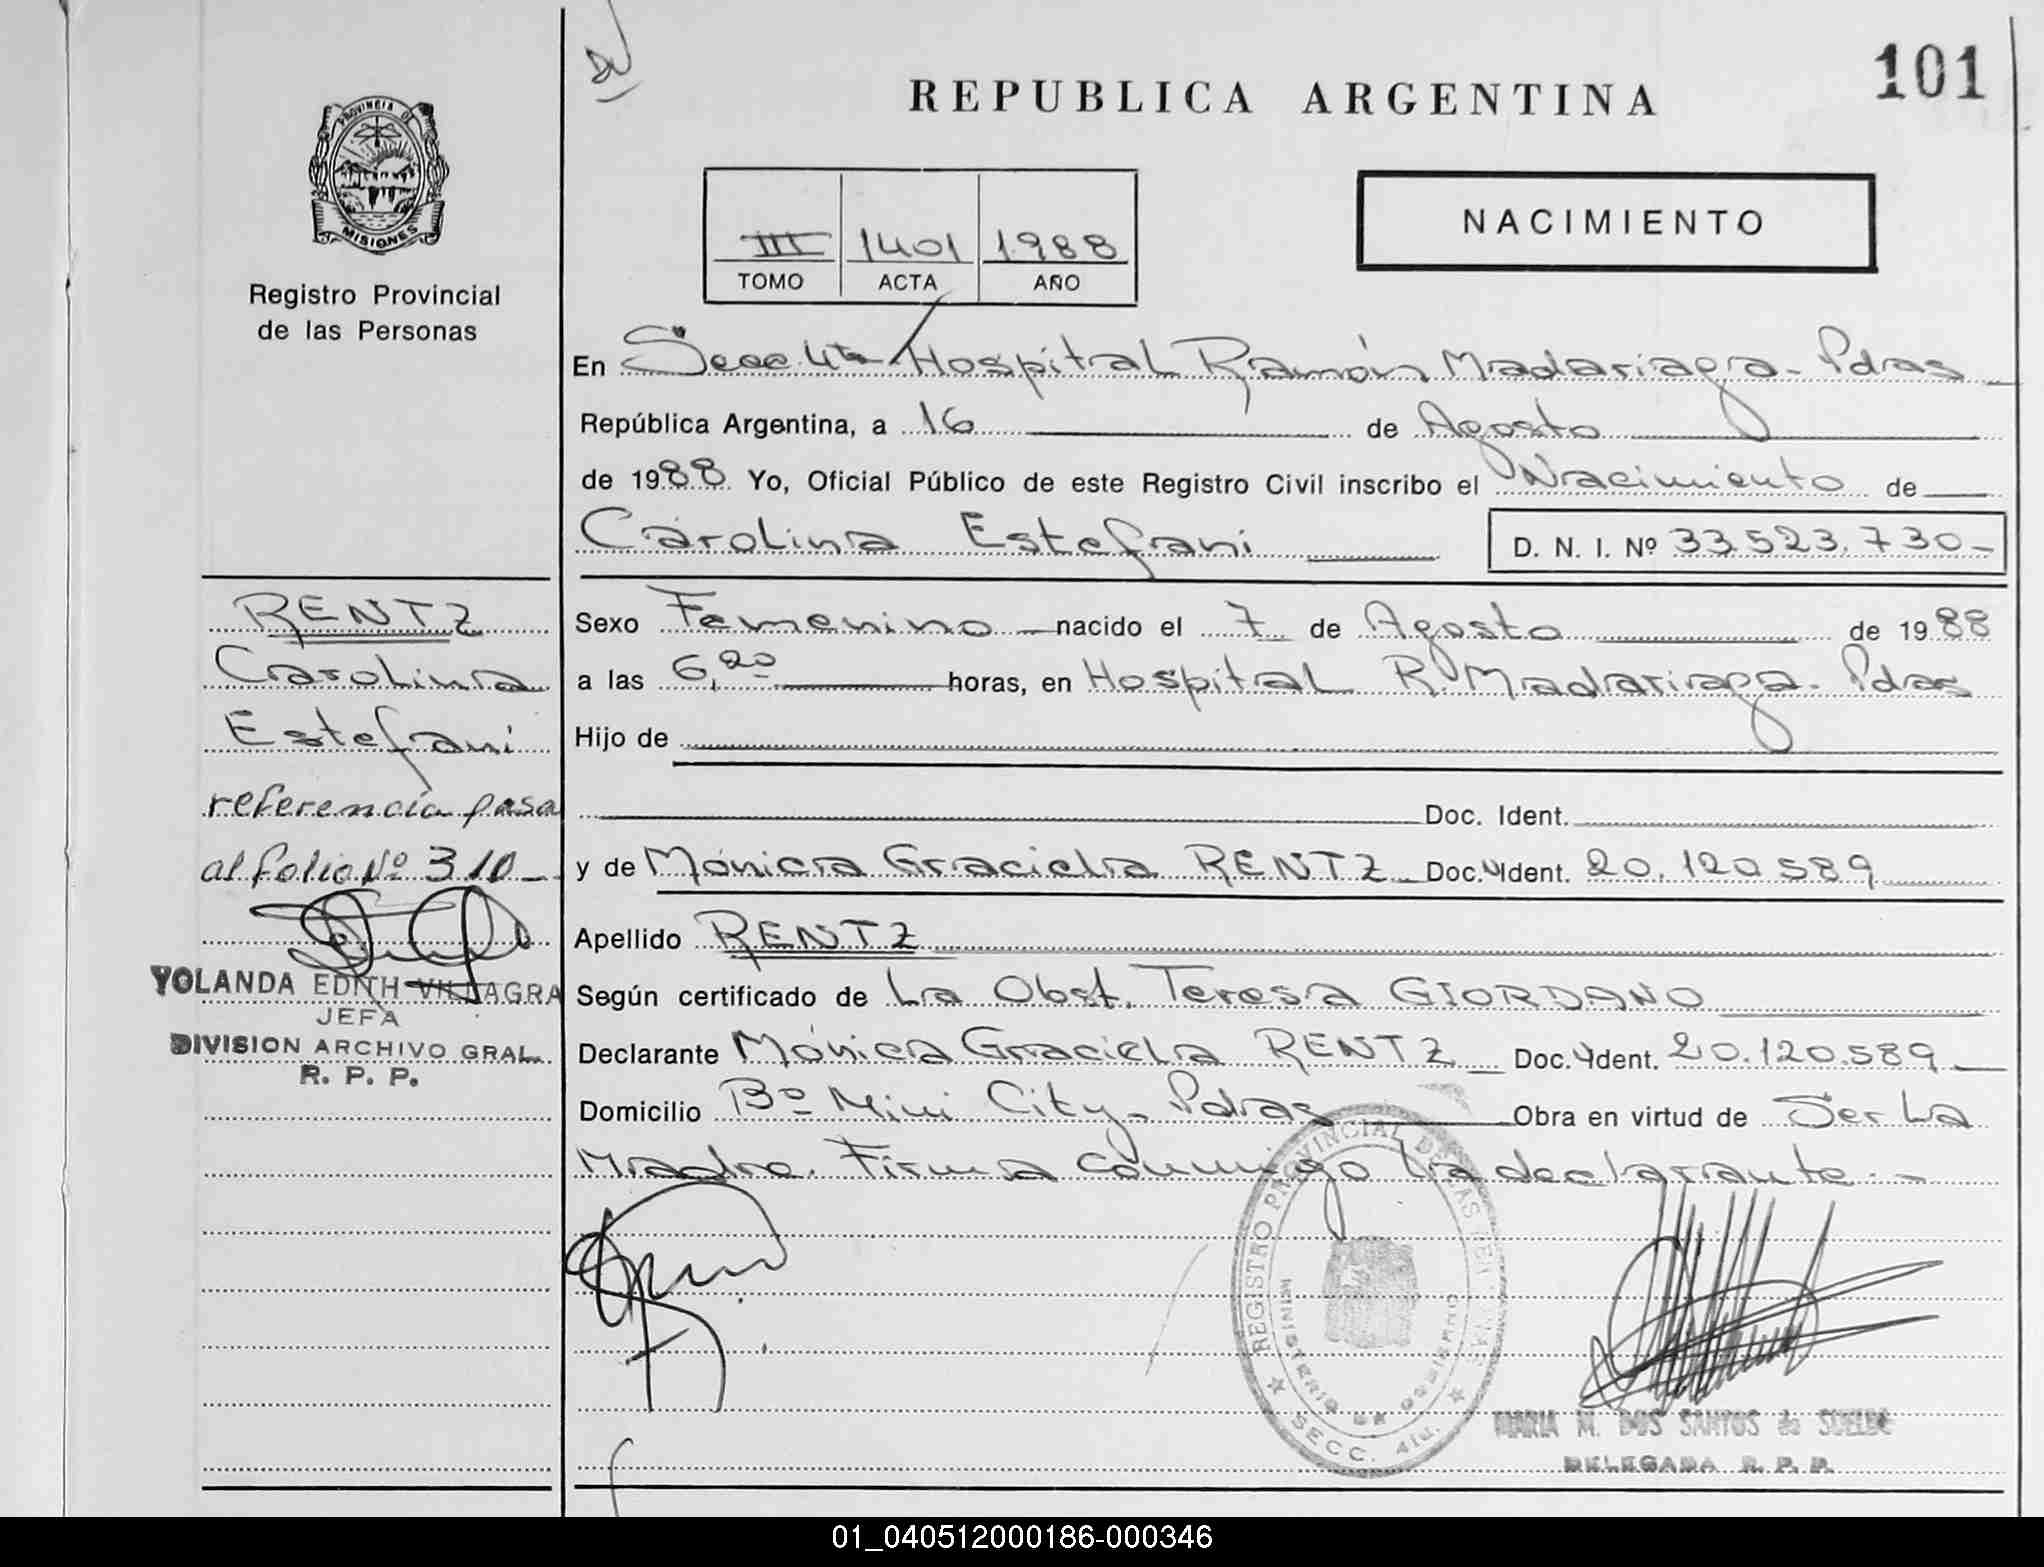 101
REPUBLICA ARGENTINA
PROVINCIA DE
MISIONES
Registro Provincial
de las Personas
III 1401 1988
TOMO ACTA AÑO
NACIMIENTO
En Secc. 4ta Hospital Ramón Madariaga - Pdas
República Argentina, a 16 de Agosto
de 1988 Yo, Oficial Público de este Registro Civil inscribo el Nacimiento de
Carolina Estefani D. N. I. Nº 33.523.730-
Sexo Femenino nacido el 7 de Agosto de 1988
a las 6,20 horas, en Hospital R. Madariaga. Pdas
Hijo de
Doc. Ident.
y de Mónica Graciela RENTZ Doc. Ident. 20.120.589
Apellido RENTZ
Según certificado de La Obst. Teresa GIORDANO
Declarante Mónica Graciela RENTZ Doc. Ident. 20.120.589
Domicilio Bº Mini City - Pdas Obra en virtud de Ser La
Madre. Firma conmigo la declarante. -
RENTZ
Carolina
Estefani
referencia pasa
al folio Nº 310-
YOLANDA EDITH VILLAGRA
JEFA
DIVISION ARCHIVO GRAL.
R. P. P.
REGISTRO PROVINCIAL DE LAS PERSONAS
MINISTERIO DE GOBIERNO
SECC. 4ta.
MARIA M. DOS SANTOS de SUELDO
DELEGADA R. P. P.
01_040512000186-000346